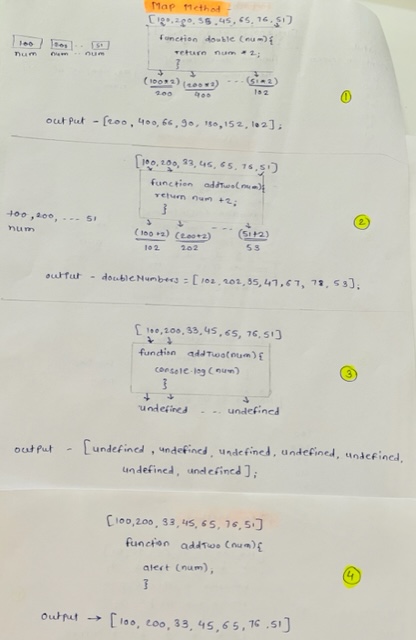 Map Method -
[100,200,33,45,65,76,51]
function double (num){
return num *2;
}
100 202 .. 51
num num num
(100*2) (200*2) ... (51*2)
200 400 102
①
output - [200, 400,66,90,130,152,102];
[100,200,33,45,65,76,51]
function addTwo(num){
return num +2;
}
100,200, --- 51
num
②
(100+2) (200+2) ... (51+2)
102 202 53
output - doubleNumbers = [102,202,35,47,67,78,53];
[100,200,33,45,65,76,51]
function addTwo(num){
console.log(num)
}
③
undefined - - - undefined
output - [undefined, undefined, undefined, undefined, undefined,
undefined, undefined];
[100,200,33,45,65,76,51]
function addTwo (num){
alert (num);
}
④
output → [100, 200, 33, 45, 65, 76, 51]